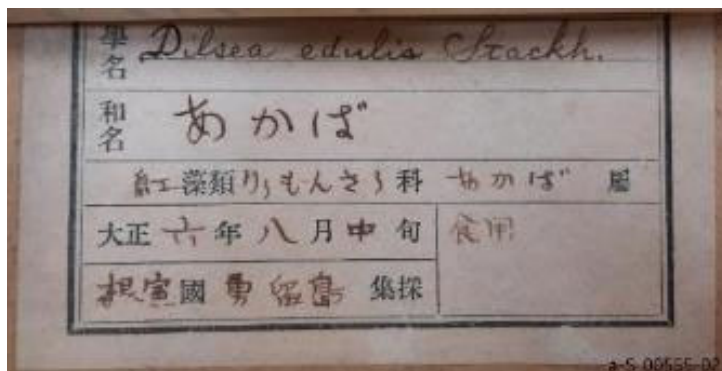 學名 Dilsea edulis Stackh.
和名 あかば
紅藻類りうもんさう科 あかば 属
大正六年八月中旬 食用
根室國勇留島 集採
a-S-00555-02